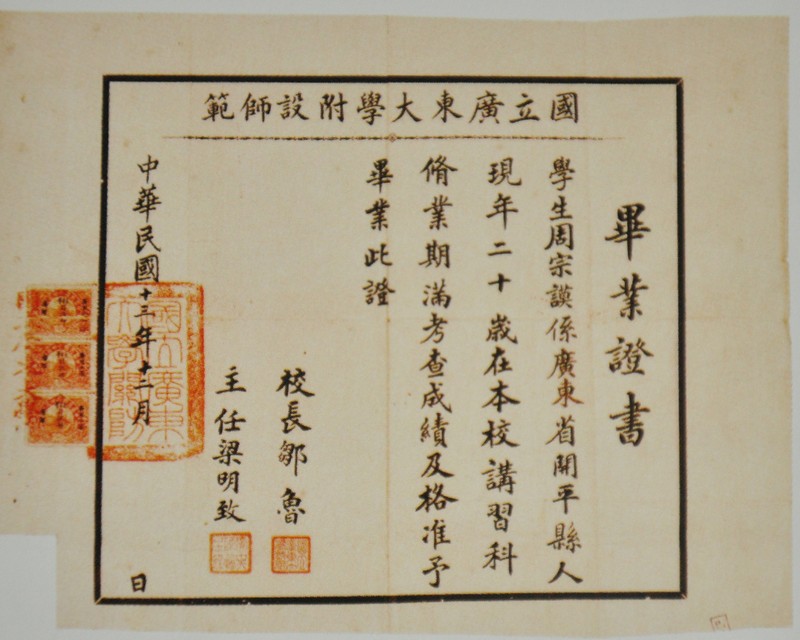 國立廣東大學附設師範
畢業證書
學生周宗謨係廣東省開平縣人
現年二十歲在本校講習科
脩業期滿考查成績及格准予
畢業此證
校長鄒魯
主任梁明致
中華民國十三年十二月 日
國立廣東大學關防